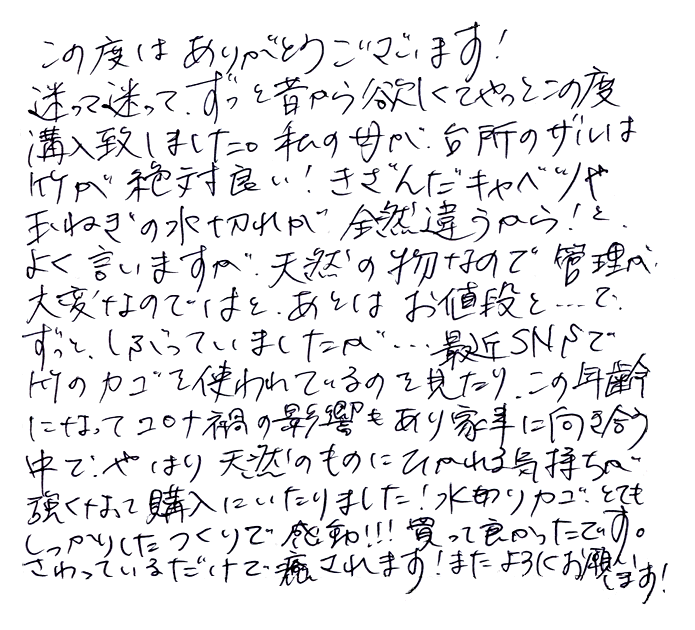 この度は ありがとうございます!
迷って迷って、ずっと昔から欲しくてやっとこの度
購入致しました。私の母が、台所のザルは
竹が 絶対良い!きざんだキャベツや
玉ねぎの水切れが 全然違うから!と、
よく言いますが、天然の物なので 管理が
大変なのではと、あとは お値段と…で、
ずっと、しぶっていましたが…最近SNSで
竹のカゴを使われているのを見たり、この年齢
になってコロナ禍の影響もあり家事に向き合う
中で、やはり 天然のものにひかれる気持ちが
強くなって購入にいたりました!水切りカゴ、とても
しっかりしたつくりで 感動!!! 買って良かったです。
さわっているだけで癒されます!またよろしくお願い
します!